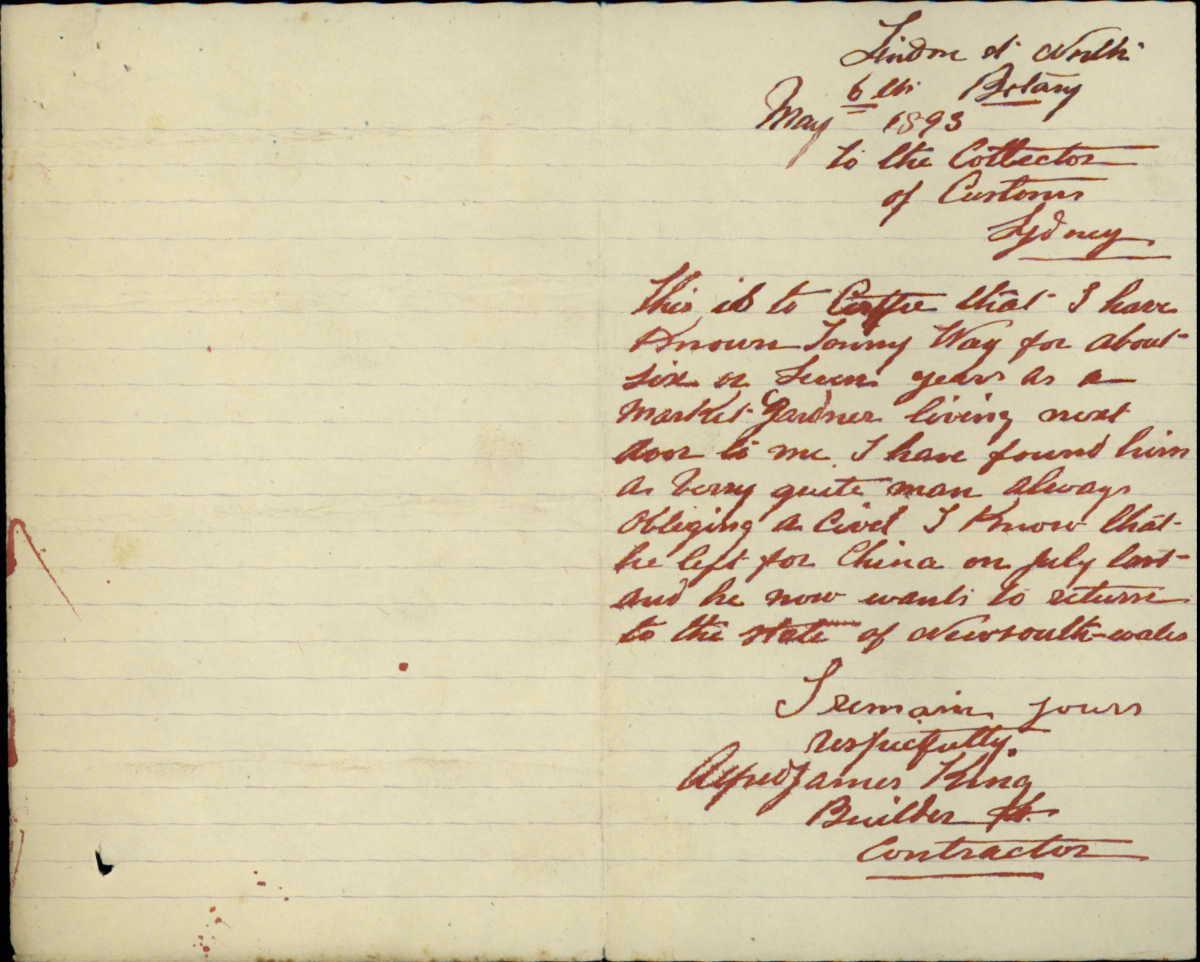 Lindon st North
6th Botany
May 1893
to the Collector
of Customs
Sydney
this is to that I have
Known Tommy Way for about
six or Seven years as a
Market Gardner living next
door to me. I have found him
as Verry quite man always
obliging a Civel I Know that
he left for China on July last
and he now wants to return
to the state of Newsouth-wales
I remain yours
respicfully.
Alfred James King
Builder &
Contractor